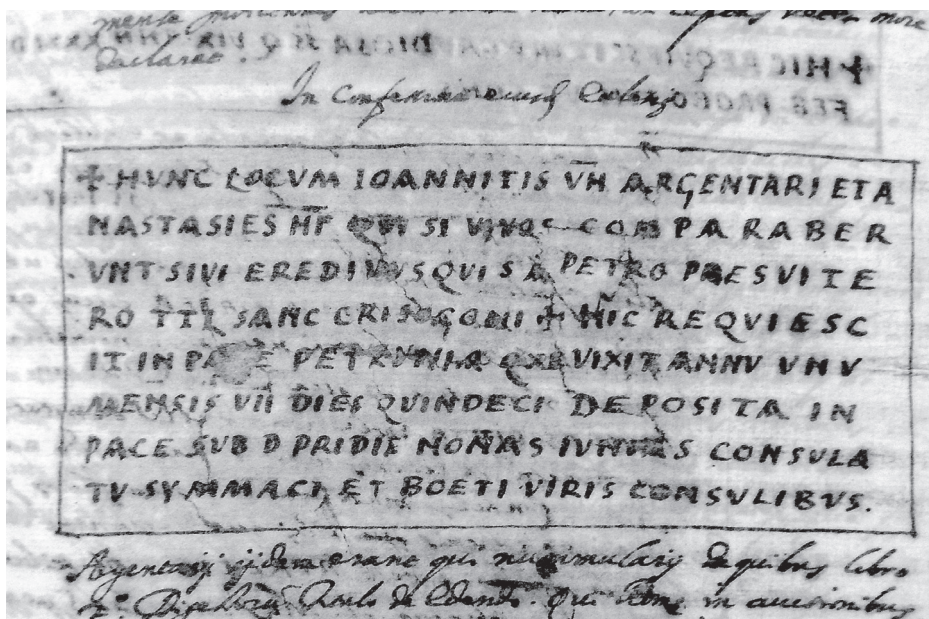 mente more
declarat.
In
✝ HVNC LOCVM IOANNITIS VH ARGENTARI ET A
NASTASIES HF QVI SI VIVOS COMPARABER
VNT SIVI EREDIVVSQVI S A PETRO PRESVITE
RO TTL SANC CRISOGONI ✝ HIC REQVIESC
IT IN PACE PETRVNIA QVE VIXIT ANNV VNV
MENSIS VII DIES QVINDECI DEPOSITA IN
PACE SUB D PRIDIE NONAS IVNIAS CONSULA
TV SYMMACI ET BOETI VIRIS CONSVLIBVS.
Argentarij ijdem erant qui nummularij de quibus libro
de Edendo. qui in auctionibus